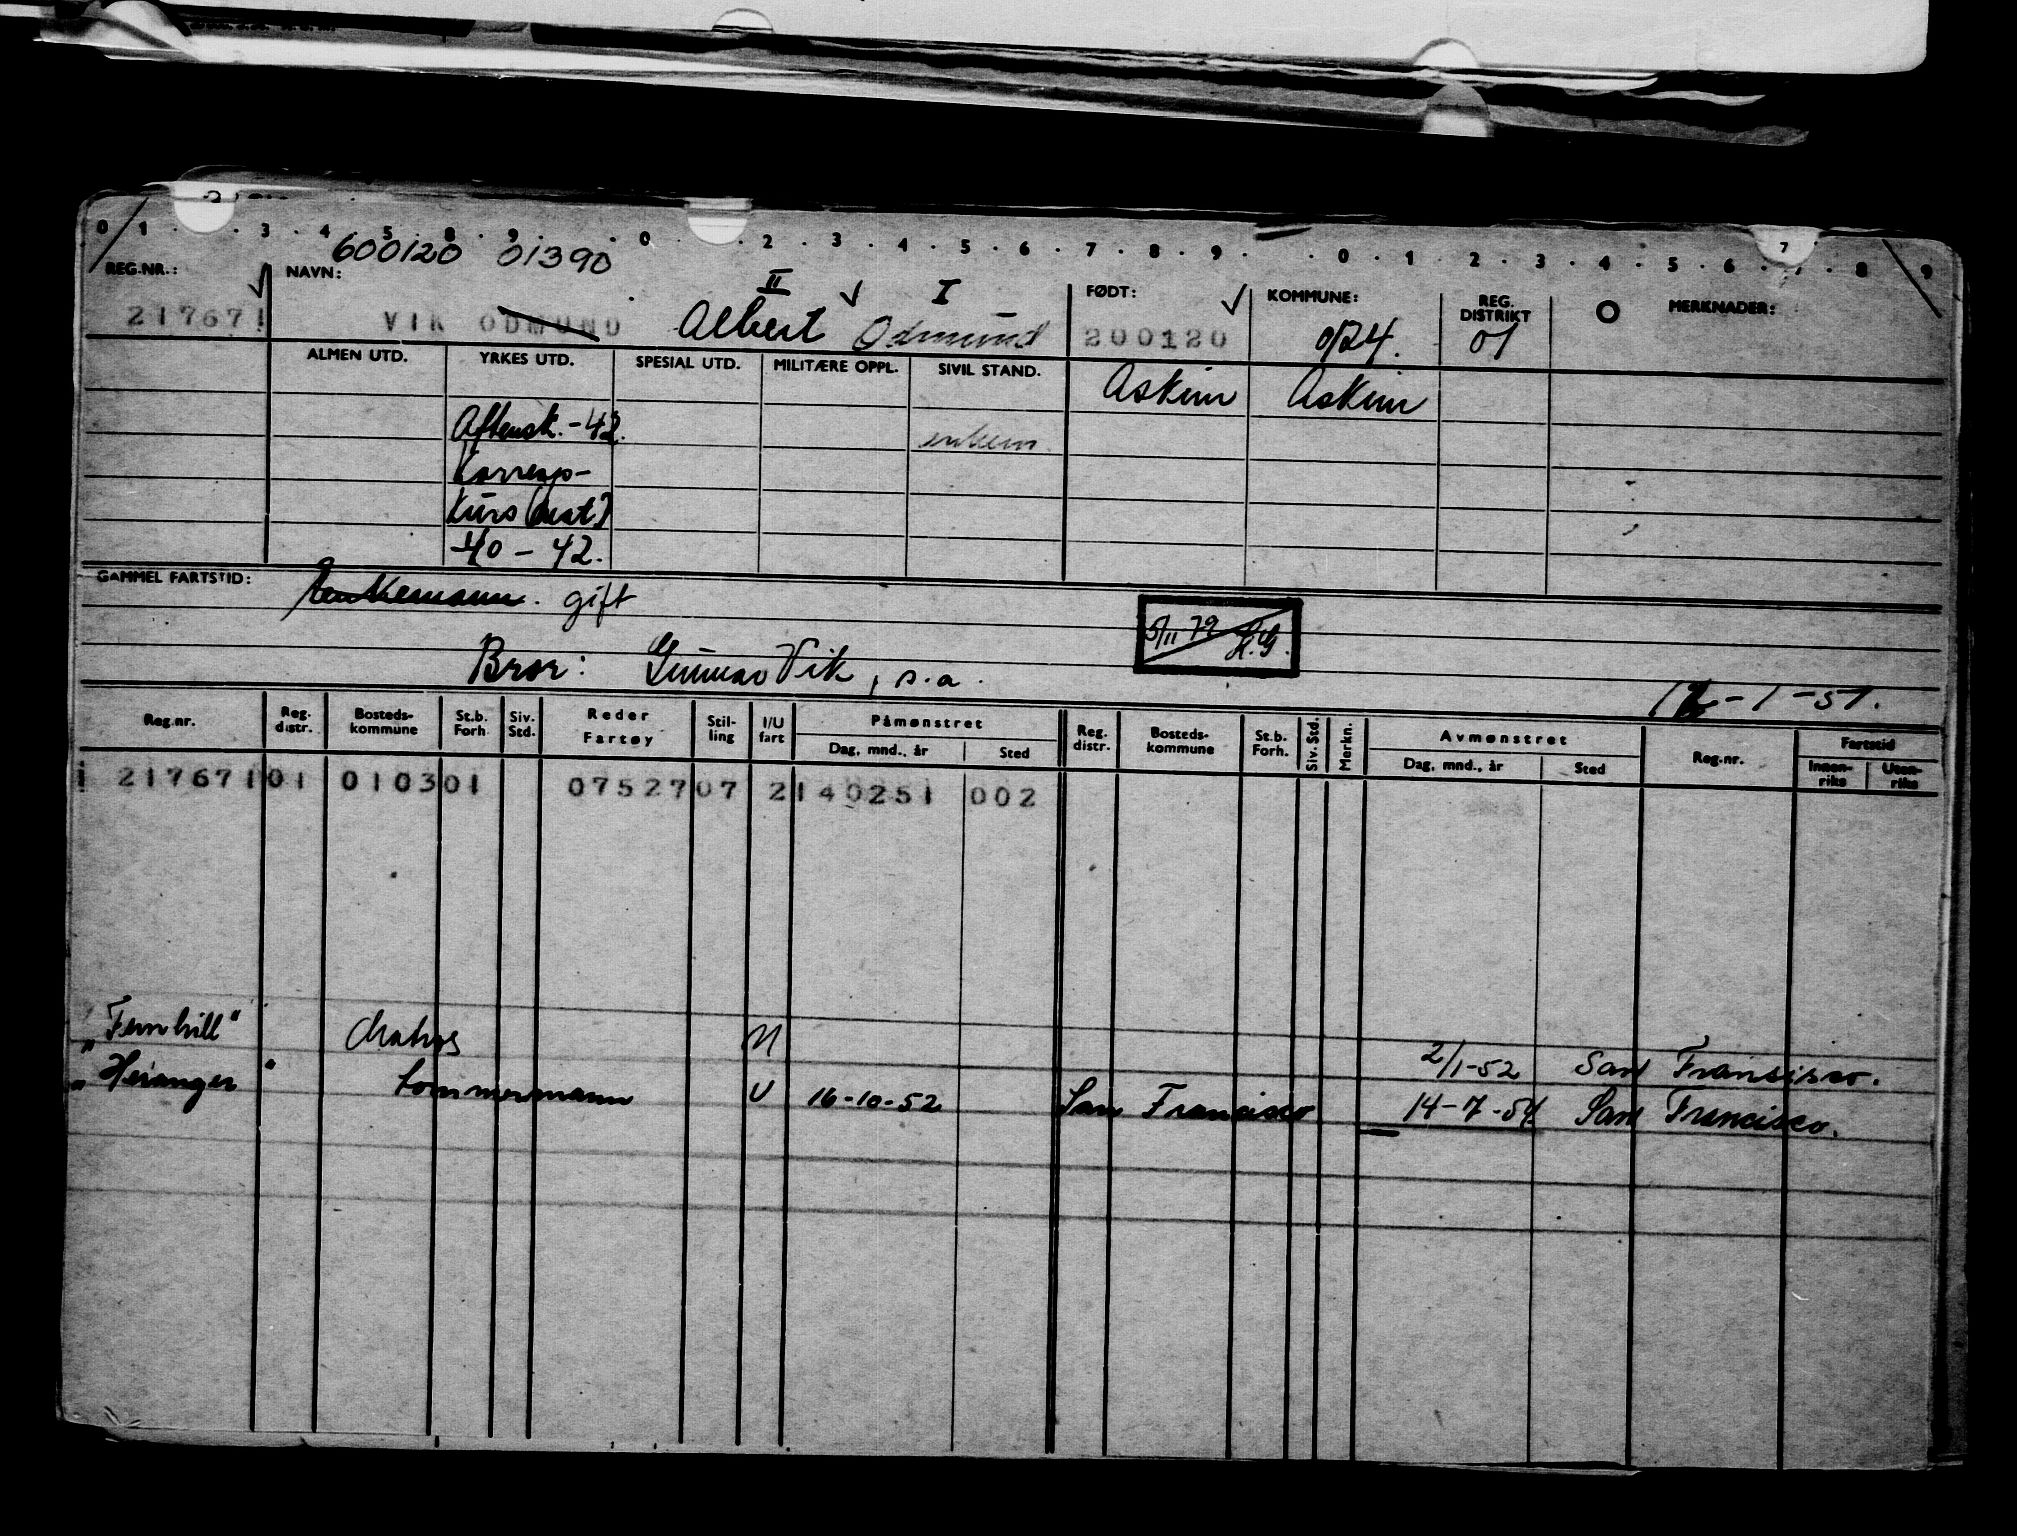 0 1 . . 3 . 4 . 5 . 8 . 9 . . 0 . . 2 . 3 . 4 . 5 . 6 . 7 . 8 . 9 . . 0 . 1 . 2 . 3 . 4 . 5 . 6 . 7 . 8 . 9
600120 01390
REG.NR.: NAVN: II I FØDT: KOMMUNE: REG. DISTRIKT MERKNADER:
217671 VIK ODMUND Albert Odmund 200120 0124. 01
ALMEN UTD. YRKES UTD. SPESIAL UTD. MILITÆRE OPPL. SIVIL STAND. Askim Askim
Aftensk. - 42.
Korresp-
Kurs (mat)
40 - 42.
GAMMEL FARTSTID: Enkemann. gift
5/11 79 H.G.
Bror: Gunnar Vik, s.a.
12-1-51.
Reg.nr. Reg. distr. Bosteds- kommune St.b. Forh Siv. Std. Reder Fartøy Stil- ling I/U fart Påmønstret Dag, mnd., år Sted Reg. distr. Bosteds- kommune St.b. Forh. Siv. Std. Merkn. Avmønstret Dag, mnd., år Sted Reg.nr. Fartstid Innen- riks Uten- riks
217671 01 0103 01 07527 07 2 140251 002
"Fernhill" Matros U 2/1-52 San Fransisco.
"Heranger" tømmermann U 16-10-52 San Francisco 14-7-54 San Francisco.